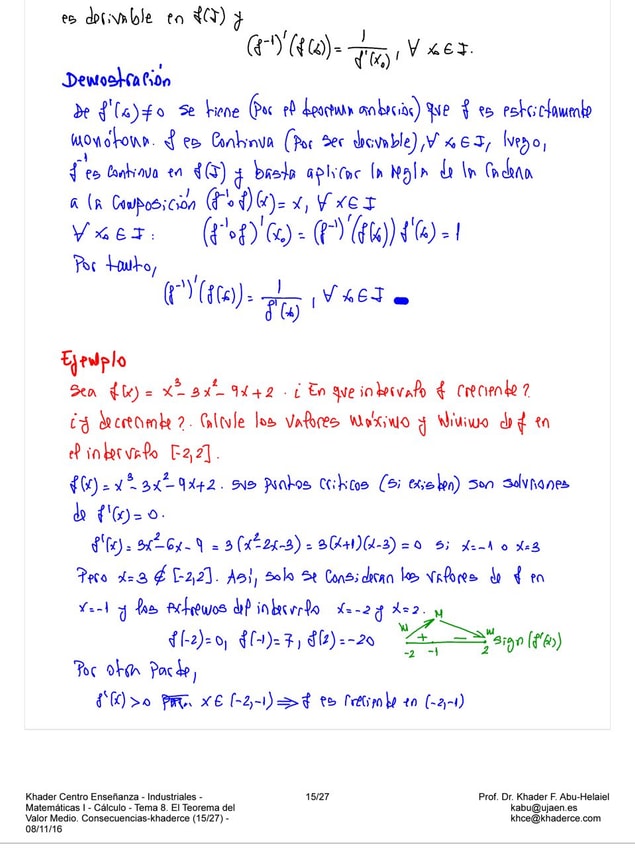 es derivable en f(I) y
(f⁻¹)'(f(x₀)) = 1/f'(x₀), ∀ x₀ ∈ I.
Demostración
De f'(x₀) ≠ 0 se tiene (por el teorema anterior) que f es estrictamente
monótona. f es continua (por ser derivable), ∀ x₀ ∈ I, luego,
f⁻¹ es continua en f(I) y basta aplicar la regla de la cadena
a la composición (f⁻¹∘f)(x) = x, ∀ x ∈ I
∀ x₀ ∈ I: (f⁻¹∘f)'(x₀) = (f⁻¹)'(f(x₀)) f'(x₀) = 1
Por tanto,
(f⁻¹)'(f(x₀)) = 1/f'(x₀), ∀ x₀ ∈ I
Ejemplo
Sea f(x) = x³ - 3x² - 9x + 2. ¿En que intervalo f creciente?
¿y decreciente?. Calcule los valores máximo y mínimo de f en
el intervalo [-2,2].
f(x) = x³ - 3x² - 9x + 2. sus puntos críticos (si existen) son soluciones
de f'(x) = 0.
f'(x) = 3x² - 6x - 9 = 3(x² - 2x - 3) = 3(x+1)(x-3) = 0 si x=-1 o x=3
Pero x=3 ∉ [-2,2]. Así, solo se consideran los valores de f en
x=-1 y los extremos del intervalo x=-2 y x=2.
f(-2)=0, f(-1)=7, f(2)=-20
m + M - m
-2 -1 2 sign(f'(x))
Por otra parte,
f'(x)>0 para x ∈ (-2,-1) ⟹ f es creciente en (-2,-1)
Khader Centro Enseñanza - Industriales -
Matemáticas I - Cálculo - Tema 8. El Teorema del
Valor Medio. Consecuencias-khaderce (15/27) -
08/11/16
15/27
Prof. Dr. Khader F. Abu-Helaiel
kabu@ujaen.es
khce@khaderce.com